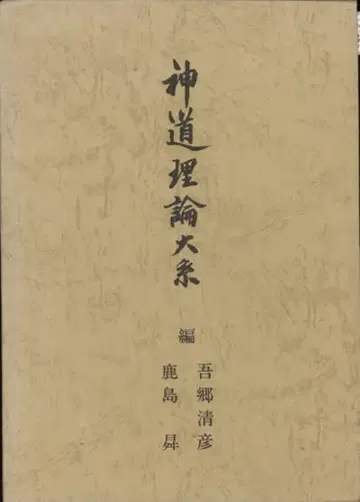 神道理論大系
編
吾郷清彦
鹿島曻